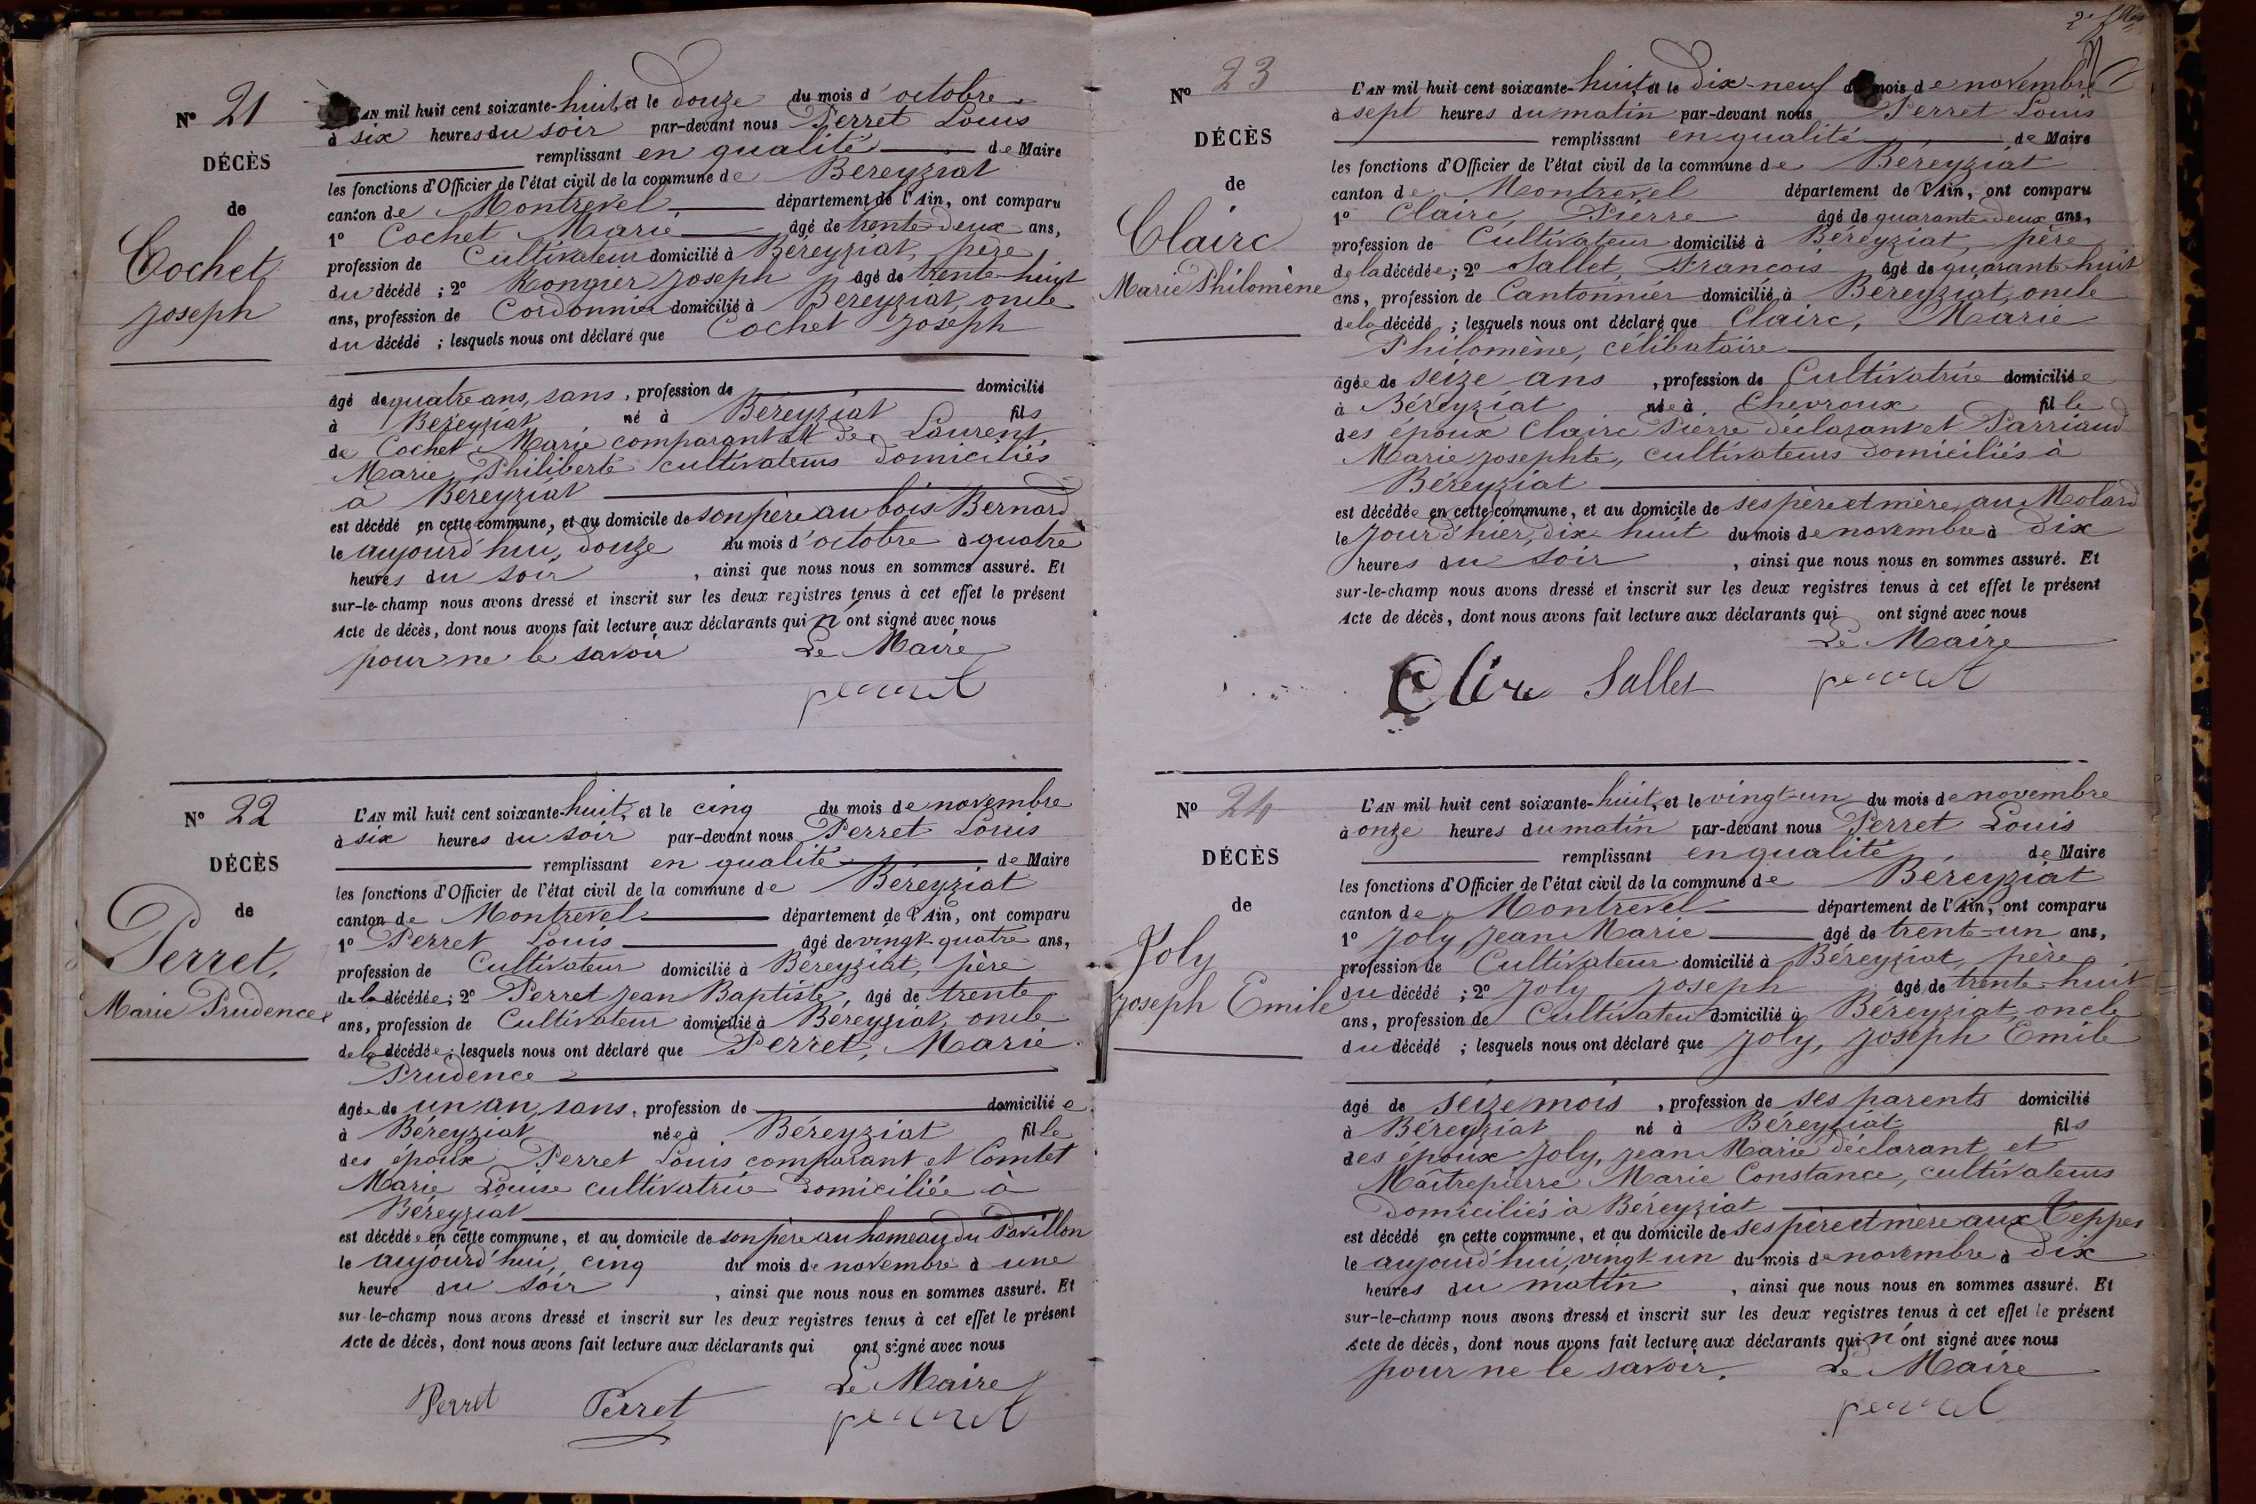 N° 21
DÉCÈS
de
Cochet
Joseph
L'AN mil huit cent soixante-huit, et le douze du mois d'octobre
à six heures du soir par-devant nous Perret Louis
remplissant en qualité de Maire
les fonctions d'Officier de l'état civil de la commune de Béreyziat
canton de Montrevel département de l'Ain, ont comparu
1° Cochet Marie âgé de trente-deux ans,
profession de Cultivateur domicilié à Béreyziat, père
du décédé ; 2° Rongier Joseph âgé de trente-huit
ans, profession de Cordonnier domicilié à Béreyziat, oncle
du décédé ; lesquels nous ont déclaré que Cochet Joseph
âgé de quatre ans, sans, profession de domicilié
à Béreyziat né à Béreyziat fils
de Cochet Marie comparant et de Laurent
Marie Philiberte cultivateurs domiciliés
à Béreyziat
est décédé en cette commune, et au domicile de son père au bois Bernard
le aujourd'hui, douze du mois d'octobre à quatre
heures du soir, ainsi que nous nous en sommes assuré. Et
sur-le-champ nous avons dressé et inscrit sur les deux registres tenus à cet effet le présent
Acte de décès, dont nous avons fait lecture aux déclarants qui n'ont signé avec nous
pour ne le savoir Le Maire
perret
N° 22
DÉCÈS
de
Perret,
Marie Prudence
L'AN mil huit cent soixante-huit, et le cinq du mois de novembre
à six heures du soir par-devant nous Perret Louis
remplissant en qualité de Maire
les fonctions d'Officier de l'état civil de la commune de Béreyziat
canton de Montrevel département de l'Ain, ont comparu
1° Perret Louis âgé de vingt-quatre ans,
profession de Cultivateur domicilié à Béreyziat, père
de la décédée ; 2° Perret Jean Baptiste, âgé de trente
ans, profession de Cultivateur domicilié à Béreyziat, oncle
de la décédée ; lesquels nous ont déclaré que Perret, Marie
Prudence
âgée de un an, sans, profession de domiciliée
à Béreyziat née à Béreyziat fille
des époux Perret Louis comparant et Comtet
Marie Louise cultivatrice domiciliée à
Béreyziat
est décédée en cette commune, et au domicile de son père au hameau du Pavillon
le aujourd'hui, cinq du mois de novembre à une
heure du soir, ainsi que nous nous en sommes assuré. Et
sur-le-champ nous avons dressé et inscrit sur les deux registres tenus à cet effet le présent
Acte de décès, dont nous avons fait lecture aux déclarants qui ont signé avec nous
Le Maire
Perret Perret perret
N° 23
DÉCÈS
de
Clairc
Marie Philomène
L'AN mil huit cent soixante-huit, et le dix-neuf du mois de novembre
à sept heures du matin par-devant nous Perret Louis
remplissant en qualité de Maire
les fonctions d'Officier de l'état civil de la commune de Béreyziat
canton de Montrevel département de l'Ain, ont comparu
1° Clairc, Pierre âgé de quarante-deux ans,
profession de Cultivateur domicilié à Béreyziat, père
de la décédée ; 2° Sallet, Francois âgé de quarante-huit
ans, profession de Cantonnier domicilié à Béreyziat, oncle
de la décédé ; lesquels nous ont déclaré que Clairc, Marie
Philomène, célibataire
âgée de seize ans, profession de Cultivatrice domiciliée
à Béreyziat née à Chevroux fille
des époux Clairc Pierre déclarant et Parriaud
Marie Josephte, cultivateurs domiciliés à
Béreyziat
est décédée en cette commune, et au domicile de ses père et mère, au Molard
le jourd'hier, dix-huit du mois de novembre à dix
heures du soir, ainsi que nous nous en sommes assuré. Et
sur-le-champ nous avons dressé et inscrit sur les deux registres tenus à cet effet le présent
Acte de décès, dont nous avons fait lecture aux déclarants qui ont signé avec nous
Le Maire
Sallet perret
N° 24
DÉCÈS
de
Joly
Joseph Emile
L'AN mil huit cent soixante-huit, et le vingt-un du mois de novembre
à onze heures du matin par-devant nous Perret Louis
remplissant en qualité de Maire
les fonctions d'Officier de l'état civil de la commune de Béreyziat
canton de Montrevel département de l'Ain, ont comparu
1° Joly, Jean Marie âgé de trente-un ans,
profession de Cultivateur domicilié à Béreyziat, père
du décédé ; 2° Joly Joseph âgé de trente-huit
ans, profession de Cultivateur domicilié à Béreyziat, oncle
du décédé ; lesquels nous ont déclaré que Joly, Joseph Emile
âgé de seize mois, profession de ses parents domicilié
à Béreyziat né à Béreyziat fils
des époux Joly, Jean Marie déclarant et
Maîtrepierre Marie Constance, cultivateurs
domiciliés à Béreyziat
est décédé en cette commune, et au domicile de ses père et mère aux Teppes
le aujourd'hui, vingt-un du mois de novembre à dix
heures du matin, ainsi que nous nous en sommes assuré. Et
sur-le-champ nous avons dressé et inscrit sur les deux registres tenus à cet effet le présent
Acte de décès, dont nous avons fait lecture aux déclarants qui n'ont signé avec nous
pour ne le savoir. Le Maire
perret